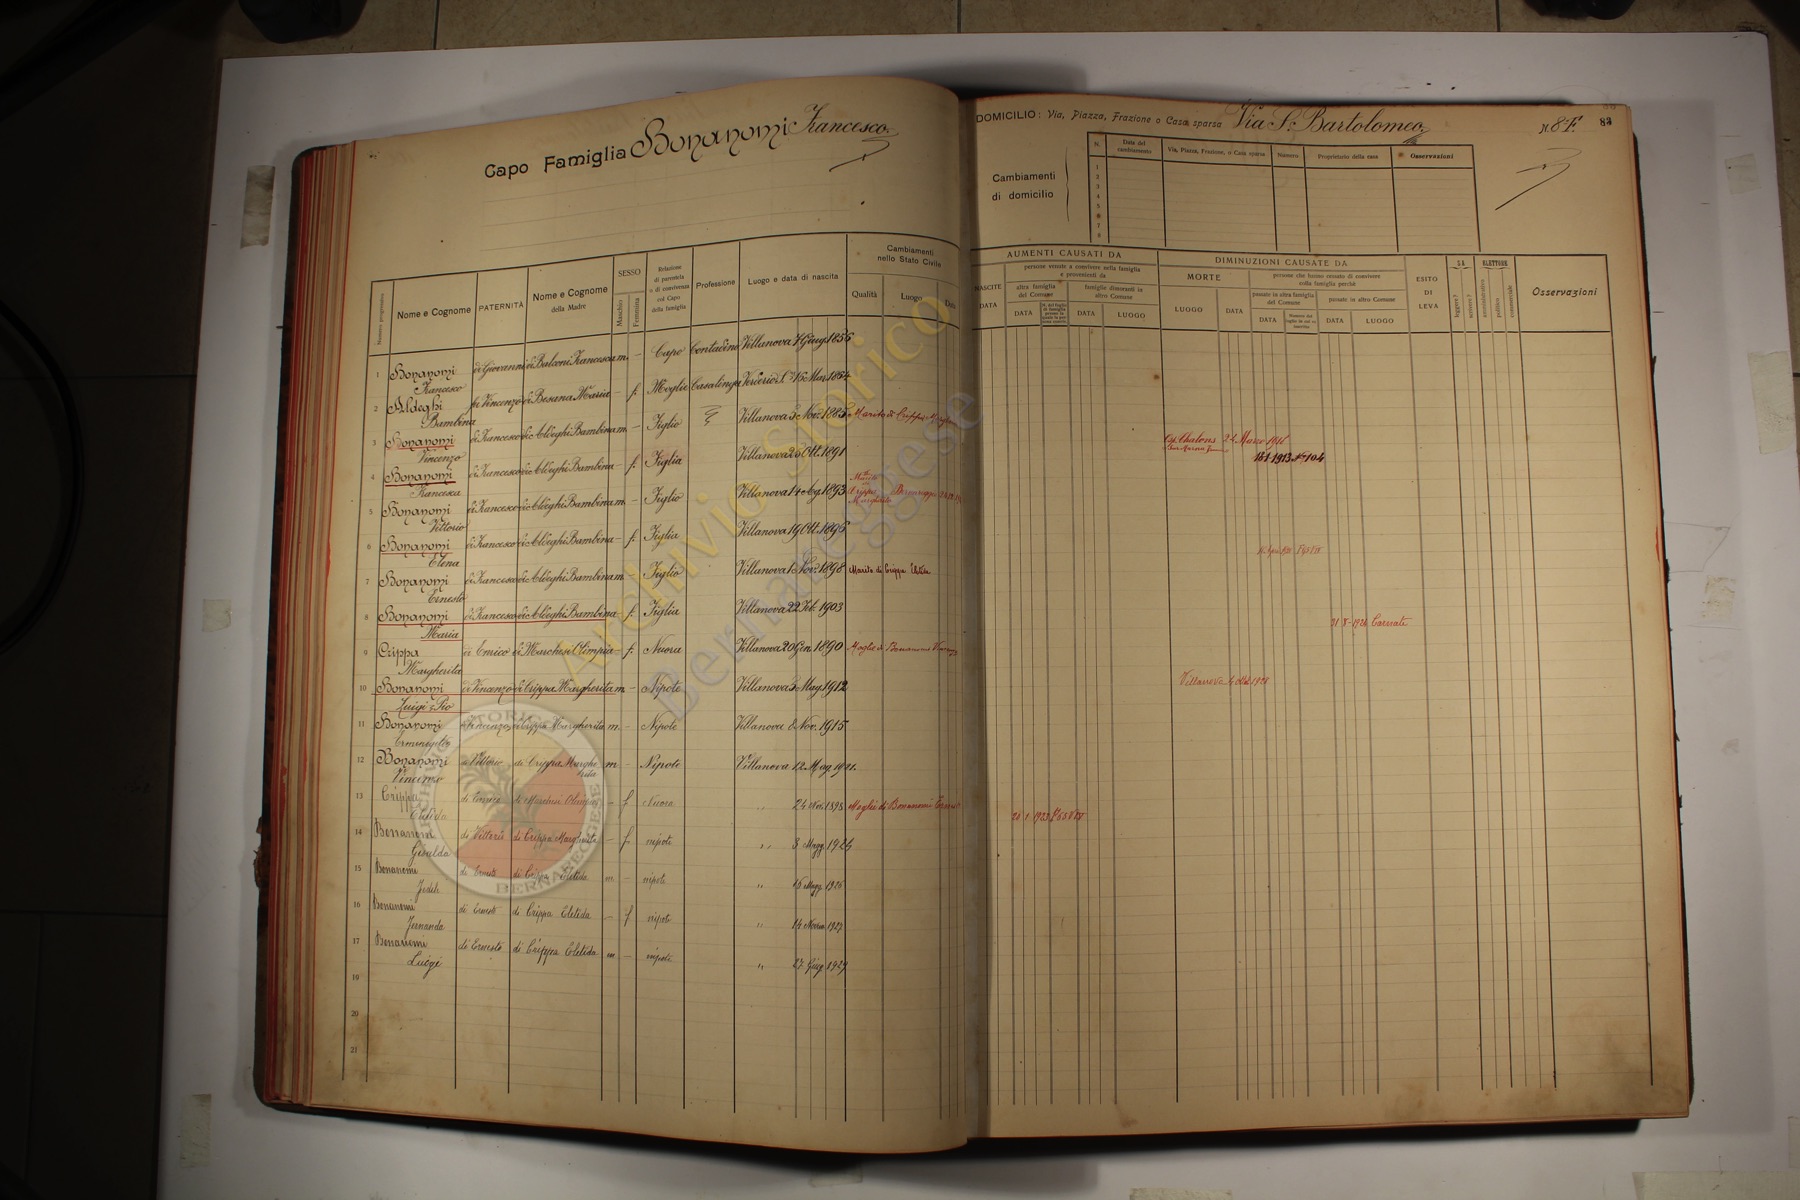 Capo Famiglia Bonanomi Francesco
DOMICILIO: Via, Piazza, Frazione o Casa sparsa Via S. Bartolomeo
N. 8 F. 83
Cambiamenti di domicilio
N. Data del cambiamento Via, Piazza, Frazione, o Casa sparsa Numero Proprietario della casa Osservazioni
1
2
3
4
5
6
7
8
Numero progressivo Nome e Cognome PATERNITÀ Nome e Cognome della Madre SESSO Maschio Femmina Relazione di parentela o di convivenza col Capo della famiglia Professione Luogo e data di nascita Cambiamenti nello Stato Civile Qualità Luogo Data
AUMENTI CAUSATI DA
NASCITE DATA persone venute a convivere nella famiglia e provenienti da altra famiglia del Comune DATA famiglie dimoranti in altro Comune DATA LUOGO
DIMINUZIONI CAUSATE DA
MORTE LUOGO DATA persone che hanno cessato di convivere colla famiglia perchè passate in altra famiglia del Comune DATA passate in altro Comune DATA LUOGO
ESITO DI LEVA SA leggere? scrivere? ELETTORE amministrativo politico commerciale Osservazioni
1 Bonanomi Francesco di Giovanni di Balconi Francesca m. - Capo Contadino Villanova 4 Giug. 1856
2 Aldeghi Bambina fu Vincenzo di Besana Maria - f. Moglie Casalinga Verderio S. 15 Mar. 1864
3 Bonanomi Vincenzo di Francesco di Aldeghi Bambina m. - Figlio Villanova 5 Nov. 1885 Marito di Crippa Osp. Chalons 22 Marzo 1916
4 Bonanomi Francesca di Francesco di Aldeghi Bambina - f. Figlia Villanova 26 Ott. 1891 18.1.1913 N. 104
5 Bonanomi Vittorio di Francesco di Aldeghi Bambina m. - Figlio Villanova 14 Ag. 1893 Marito di Crippa Margherita Bernareggio
6 Bonanomi Elena di Francesco di Aldeghi Bambina - f. Figlia Villanova 19 Ott. 1895
7 Bonanomi Ernesto di Francesco di Aldeghi Bambina m. - Figlio Villanova 1 Nov. 1898 Marito di Crippa Cletide
8 Bonanomi Maria di Francesco di Aldeghi Bambina - f. Figlia Villanova 22 Feb. 1903 Carnate
9 Crippa Margherita di Enrico di Marchesi Olimpia - f. Nuora Villanova 20 Gen. 1890 Moglie di Bonanomi
10 Bonanomi Luigi Pio di Vincenzo di Crippa Margherita m - Nipote Villanova 5 Mag. 1912 Villanova 1928
11 Bonanomi Ermenegildo di Vincenzo di Crippa Margherita m. - Nipote Villanova 8 Nov. 1915
12 Bonanomi Vincenzo di Vittorio di Crippa Margherita m - Nipote Villanova 12 Mag. 1921
13 Crippa Cletida di Enrico di Marchesi Olimpia - f Nuora " 24 Nov. 1898 Moglie di Bonanomi Ernesto
14 Bonanomi Gesulda di Vittorio di Crippa Margherita - f nipote " 3 Magg. 1924
15 Bonanomi Fedele di Ernesto di Crippa Cletida m - nipote " 15 Magg. 1925
16 Bonanomi Fernanda di Ernesto di Crippa Cletida - f nipote " 14 1927
17 Bonanomi Luigi di Ernesto di Crippa Cletida m - nipote " 27 Giug. 1929
19
20
21
Archivio Storico
Bernareggese
ARCHIVIO STORICO BERNAREGGESE